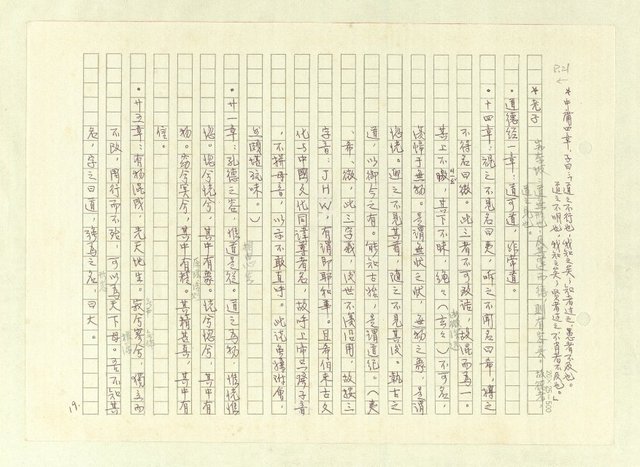 P.21
*中庸四章,子曰:「道之不行也,我知之矣,知者過之,愚者不及也。
道之不明也,我知之矣,賢者過之,不肖者不及也。」
*老子
•道德經一章:道可道,非常道。
•十四章:視之不見名曰夷,听之不聞名曰希,摶之
不得名曰微。此三者不可致詰,故混而為一。
其上不皦,其下不昧,繩繩(玄玄)不可名,
復歸于無物。是謂無狀之狀,無物之象,是謂
惚恍。迎之不見其首,隨之不見其後。執古之
道,以御今之有。能知古始,是謂道紀。(夷
、希、微,此三字義,後世不復沿用,故疑三
字音:JHW,有謂即耶和華。且希伯來古文
化与中國文化同謹尊者名,故呼上帝只發子音
,不拼母音,以示不敢直呼。此說虽穿鑿附會,
且頗堪玩味。)
•廿一章:孔德之容,惟道是從。道之為物,惟恍惟
惚。惚兮恍兮,其中有象。恍兮惚兮,其中有
物。窈兮冥兮,其中有精。其精甚真,其中有
信。
•廿五章:有物混成,先天地生。寂兮寥兮,獨立而
不改,周行而不殆,可以為天下母。吾不知其
名,字之曰道,強為之名,曰大。
19.